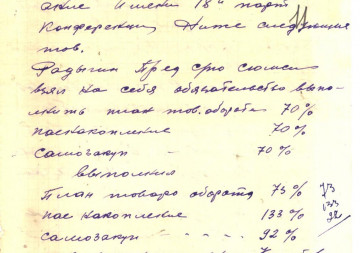 имени 18й парт
Конференции Ниже следующие
тов.
Радыгин Пред сто
взял на себя обязательство выпо-
лнить план тов. оборота 70%
паенакопление 70%
самозакуп - 70%
выполнил
План товаро оборота 75%
пае накопление 133%
самозакуп - - - - 92%